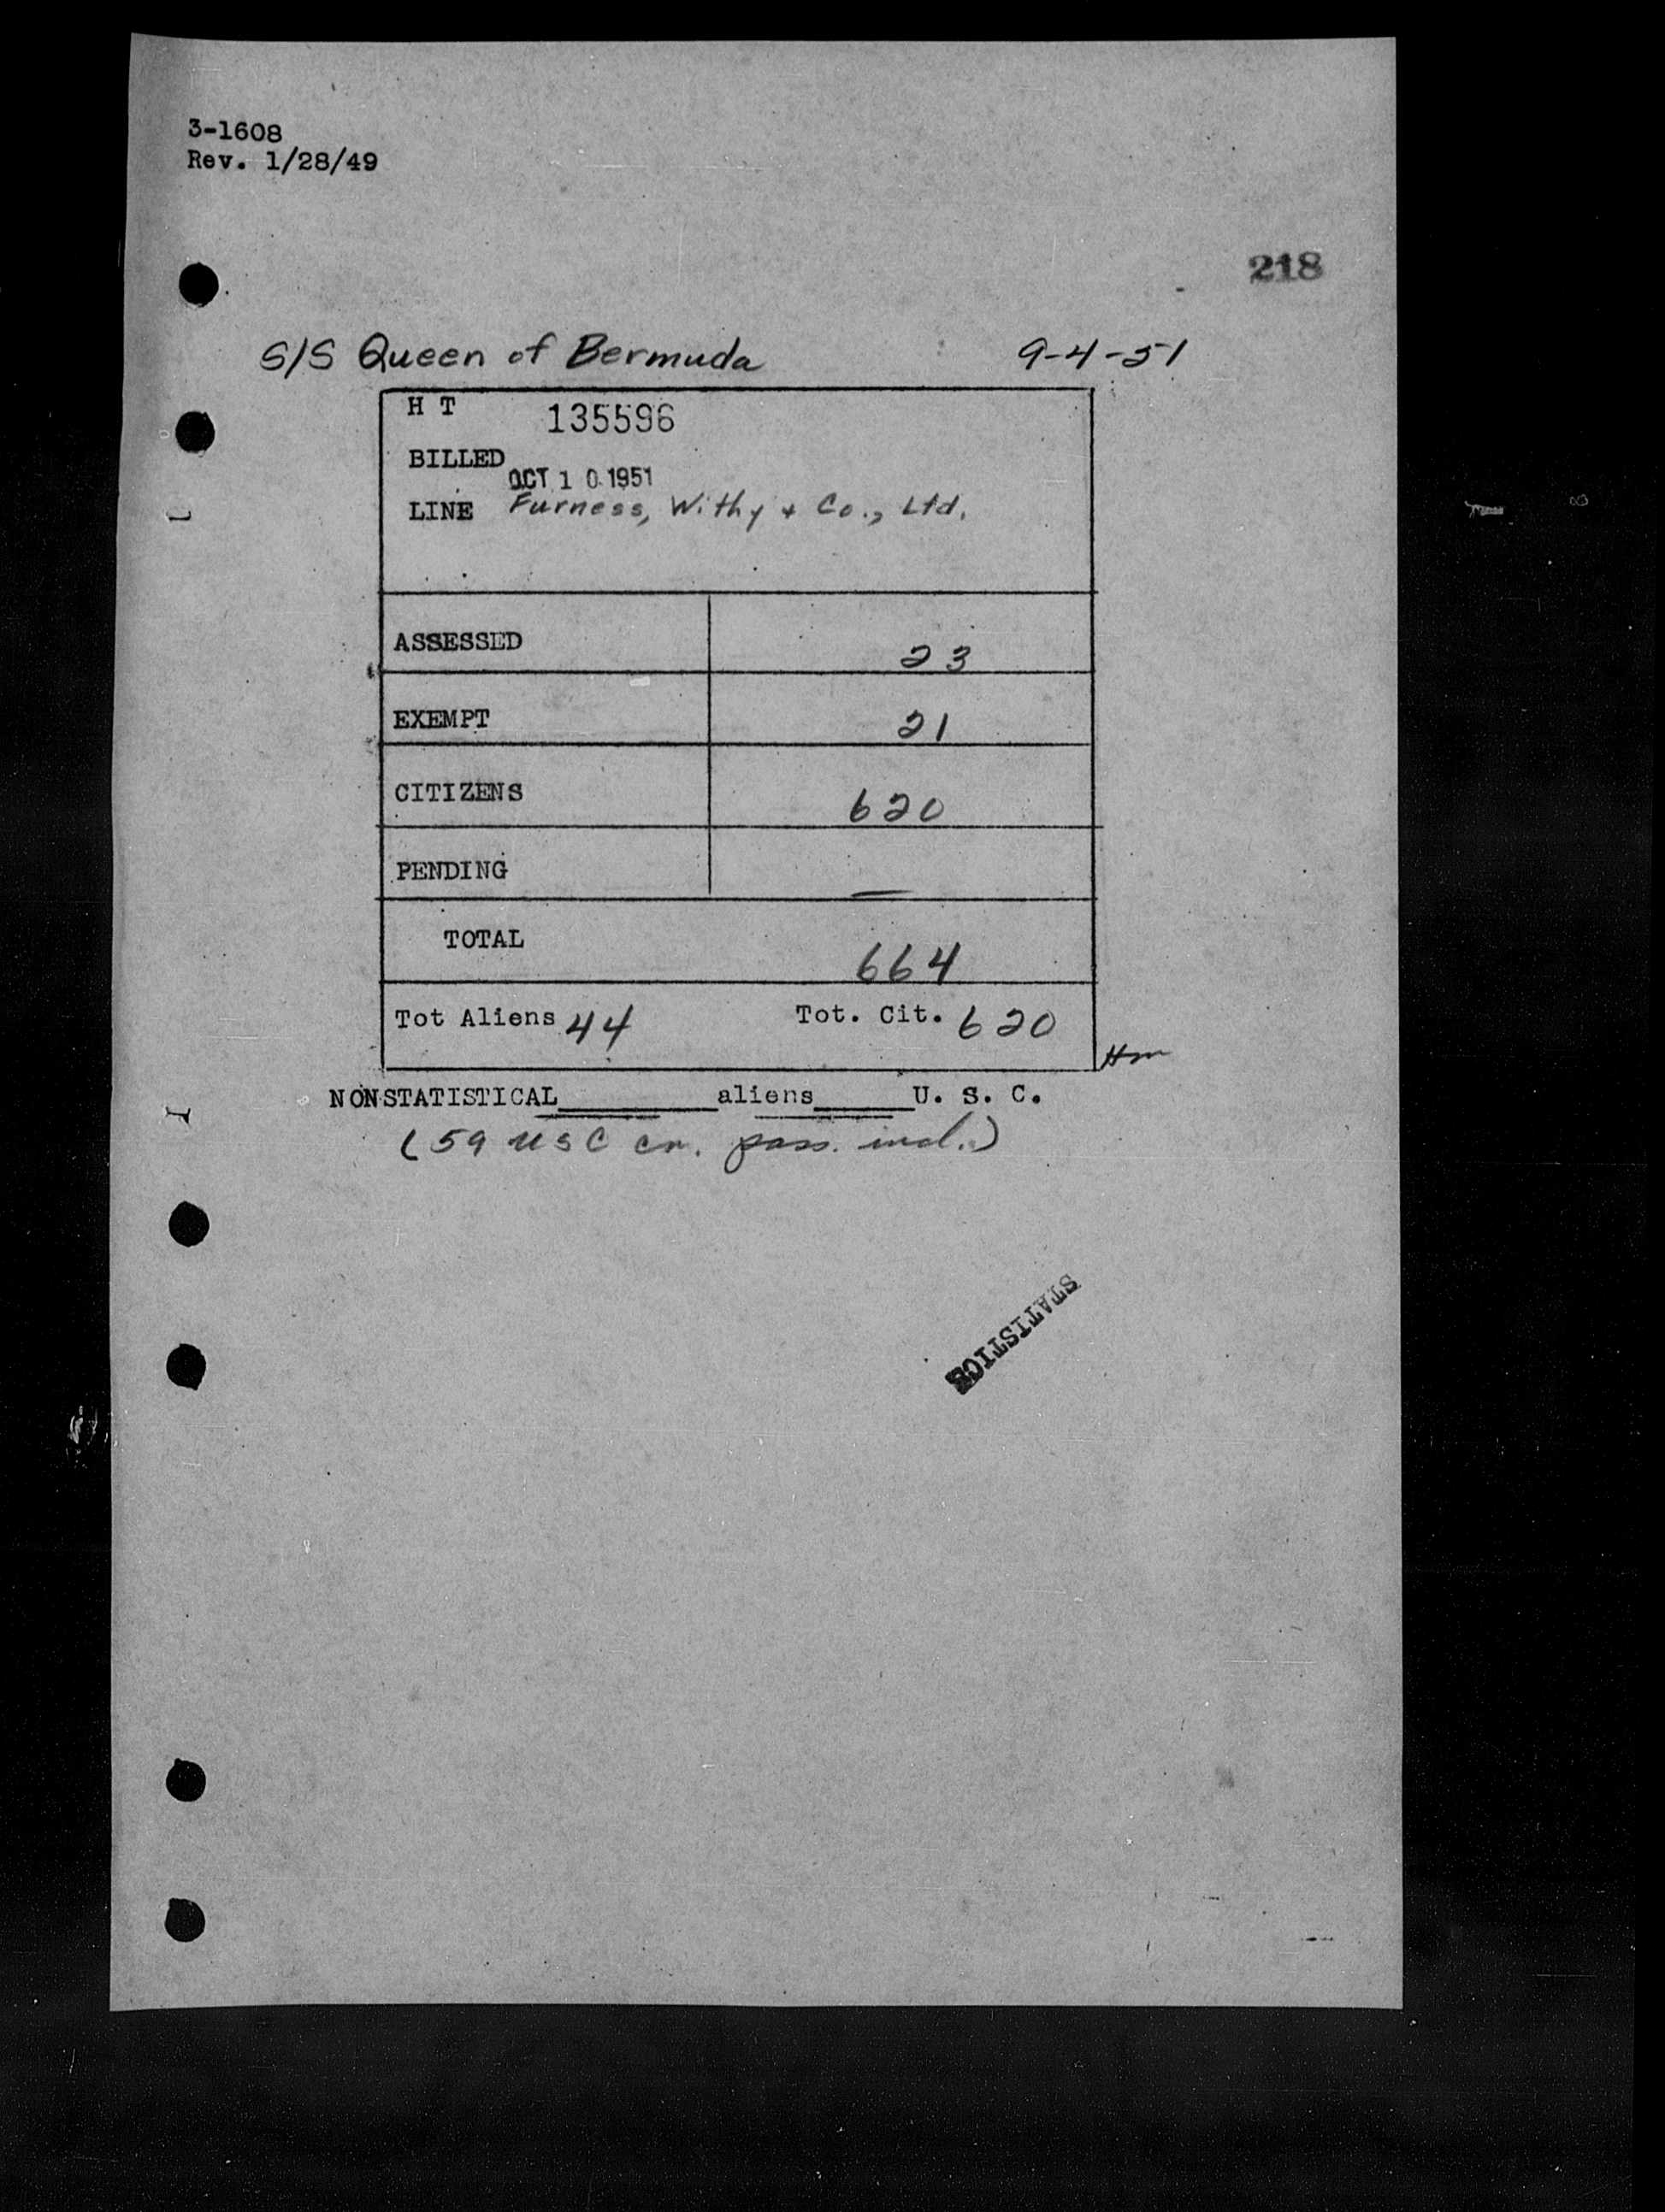 3-1608
Rev. 1/28/49
218
S/S Queen of Bermuda 9-4-51
H T 135596
BILLED
OCT 10 1951
LINE Furness, Withy + Co., Ltd.
ASSESSED 23
EXEMPT 21
CITIZENS 620
PENDING —
TOTAL 664
Tot Aliens 44 Tot. Cit. 620
NONSTATISTICAL______aliens____U. S. C.
(59 USC cr. pass. incl.)
STATISTICS